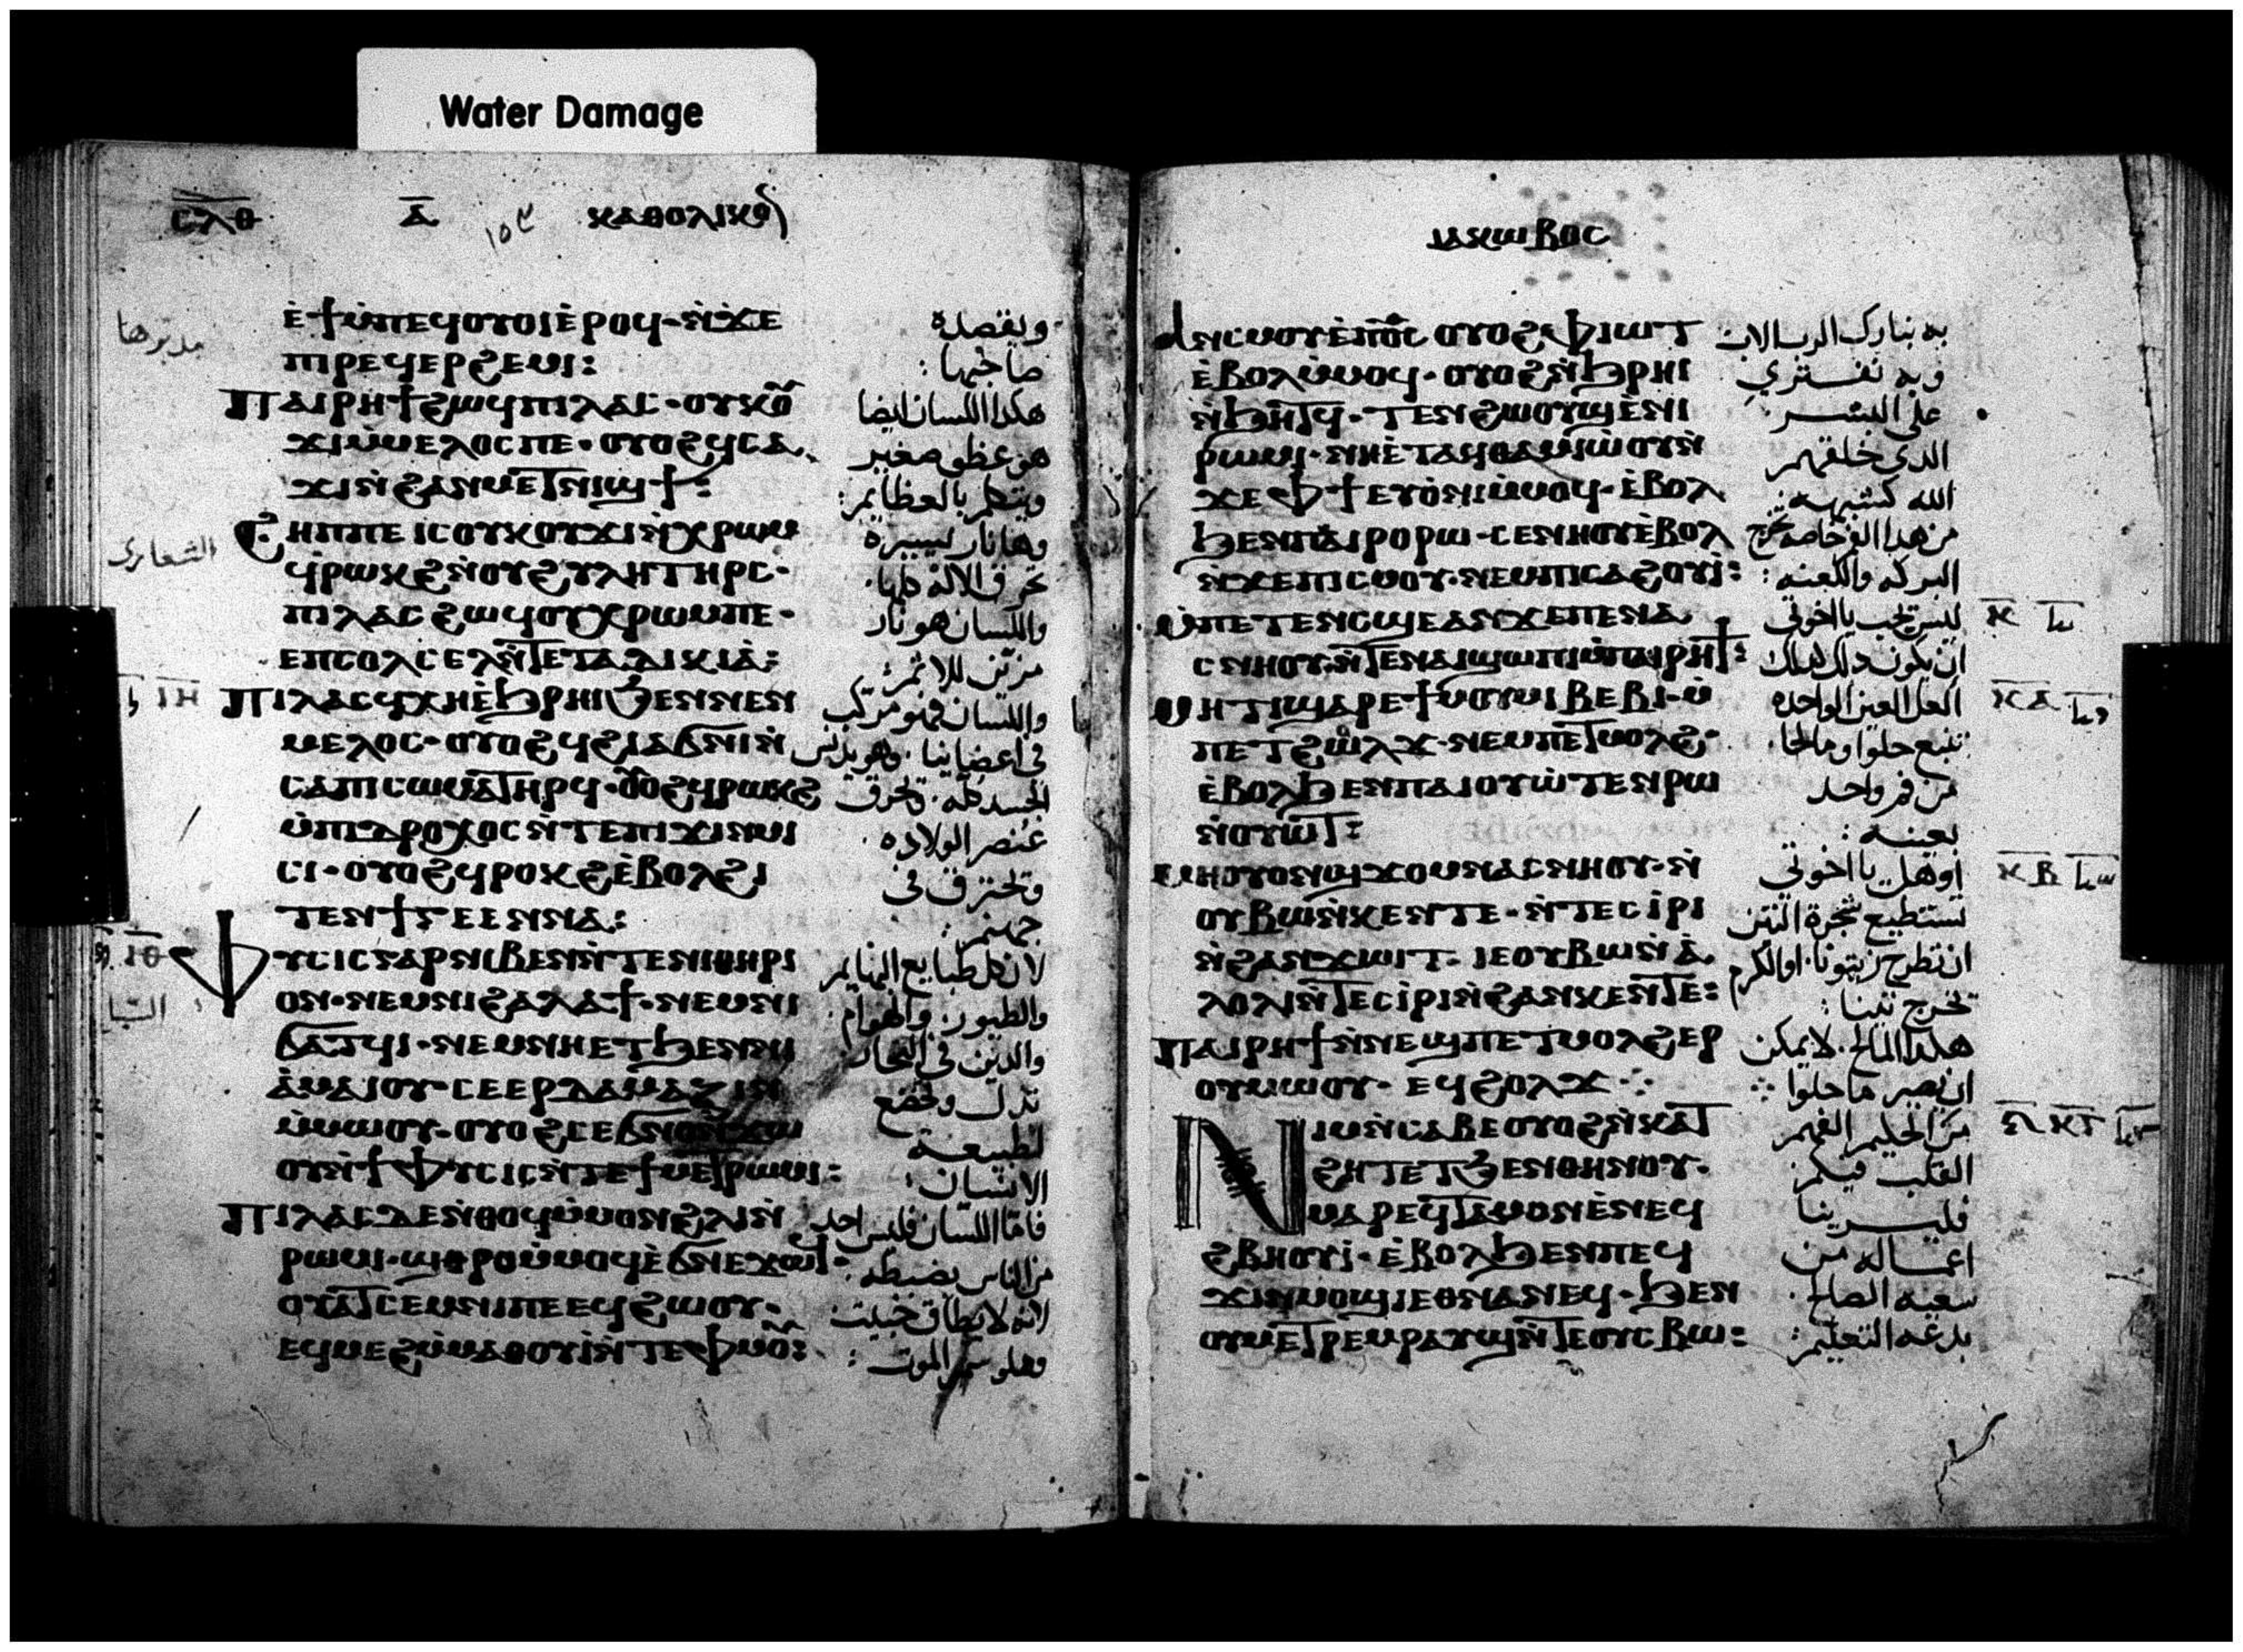 Water Damage
ⲥⲗⲑ ⲁ̅ ⲕⲁⲑⲟⲗⲓⲕⲟⲛ
ⲉ̀ϯⲙ̀ⲡⲉϥⲟⲩⲟⲓ ⲉ̀ⲣⲟϥ· ⲛ̀ϫⲉ
ⲡⲓⲣⲉϥⲉⲣϩⲉⲙⲓ:
ⲡⲁⲓⲣⲏϯ ϩⲱϥ ⲡⲓⲗⲁⲥ· ⲟⲩⲕⲟⲩ
ϫⲓ ⲙ̀ⲙⲉⲗⲟⲥ ⲡⲉ· ⲟⲩⲟϩ ϥⲥⲁ
ϫⲓ ⲛ̀ϩⲁⲛⲙⲉⲧⲛⲓϣϯ:
ϩⲏⲡⲡⲉ ⲓⲥ ⲟⲩⲕⲟⲩϫⲓ ⲛ̀ⲭⲣⲱⲙ
ϥⲣⲱⲕϩ ⲛ̀ⲟⲩϩⲩⲗⲏ ⲧⲏⲣⲥ·
ⲡⲓⲗⲁⲥ ϩⲱϥ ⲟⲩⲭⲣⲱⲙ ⲡⲉ·
ⲉⲡⲥⲟⲗⲥⲉⲗ ⲛ̀ⲧⲉ ⲧⲁⲇⲓⲕⲓⲁ̀:
ⲡⲓⲗⲁⲥ ϥⲭⲏ ⲉ̀ϧⲣⲏⲓ ϧⲉⲛ ⲛⲉⲛ
ⲙⲉⲗⲟⲥ· ⲟⲩⲟϩ ϥϩⲓⲁϭⲛⲓ ⲛ̀
ⲥⲁ ⲡⲓⲥⲱⲙⲁ ⲧⲏⲣϥ· ⲟⲩⲟϩ ϥⲣⲱⲕϩ
ⲙ̀ⲡⲓⲇⲣⲟⲭⲟⲥ ⲛ̀ⲧⲉ ⲡⲓϫⲓⲛⲙⲓ
ⲥⲓ· ⲟⲩⲟϩ ϥⲣⲟⲕϩ ⲉ̀ⲃⲟⲗ ϩⲓ
ⲧⲉⲛ ϯⲅⲉⲉⲛⲛⲁ:
ⲫⲩⲥⲓⲥ ⲅⲁⲣ ⲛⲓⲃⲉⲛ ⲛ̀ⲧⲉ ⲛⲓⲑⲏⲣⲓ
ⲟⲛ· ⲛⲉⲙ ⲛⲓϩⲁⲗⲁϯ· ⲛⲉⲙ ⲛⲓ
ϭⲁⲧϥⲓ· ⲛⲉⲙ ⲛⲏ ⲉⲧϧⲉⲛ ⲛⲓ
ⲁ̀ⲙⲁⲓⲟⲩ· ⲥⲉⲉⲣⲇⲁⲙⲁⲍⲓⲛ
ⲙ̀ⲙⲱⲟⲩ· ⲟⲩⲟϩ ⲥⲉϭⲛⲟⲛ ϫⲱ
ⲟⲩ ⲛ̀ϯⲫⲩⲥⲓⲥ ⲛ̀ⲧⲉ ϯⲙⲉⲧⲣⲱⲙⲓ:
ⲡⲓⲗⲁⲥ ⲇⲉ ⲛ̀ⲑⲟϥ ⲙ̀ⲙⲟⲛ ϩ̀ⲗⲓ ⲛ̀
ⲣⲱⲙⲓ· ϣⲑⲣⲟ ⲙ̀ⲙⲟϥ ⲉ̀ϭⲛⲉϫⲱϥ·
ⲟⲩⲁⲧⲥⲉⲙⲛⲓ ⲡⲉ ⲉϥϩⲱⲟⲩ·
ⲉϥⲙⲉϩ ⲙ̀ⲙⲁⲑⲟⲩⲓ̀ ⲛ̀ⲧⲉ ⲫⲙⲟⲩ:
ويقصده
صاحبها:
هكذا اللسان ايضا
هو عظو صغير
ويتكلم بالعظايم:
وها نار يسيره
تحرق الاله كلها·
واللسان هو نار
مزين للاثم:
واللسان فهو مركب
في اعضاينا· وهو يدنس
الجسد كله· وتحرق
عنصر الولاده·
وتحترق في
جهنم:
لان كل طبايع البهايم
والطيور· والهوام·
والذين في البحار·
تذل وتخضع
لطبيعة
الانسان:
فاما اللسان فليس احد
من الناس يضبطه·
لانه لا يطاق خبيث·
ومملو سم الموت:
ⲓⲁⲕⲱⲃⲟⲥ
ⲁⲛⲥⲙⲟⲩ ⲉ̀ⲡⲟ̅ⲥ̅ ⲟⲩⲟϩ ⲫⲓⲱⲧ
ⲉ̀ⲃⲟⲗ ⲙ̀ⲙⲟϥ· ⲟⲩⲟϩ ⲛ̀ϧⲣⲏⲓ
ⲛ̀ϧⲏⲧϥ· ⲧⲉⲛϩⲱⲟⲩϣ ⲉ̀ⲛⲓ
ⲣⲱⲙⲓ· ⲛⲏ ⲉ̀ⲧⲁϥⲑⲁⲙⲓⲱ̀ⲟⲩ ⲛ̀
ϫⲉ ⲫϯ ⲉⲩⲟ̀ⲛⲓ ⲙ̀ⲙⲟϥ· ⲉ̀ⲃⲟⲗ
ϧⲉⲛ ⲡⲁⲓⲣⲟ ⲣⲱ· ⲥⲉⲛⲏⲟⲩ ⲉ̀ⲃⲟⲗ
ⲛ̀ϫⲉ ⲡⲓⲥⲙⲟⲩ· ⲛⲉⲙ ⲡⲓⲥⲁϩⲟⲩⲓ̀:
ⲙ̀ⲡⲉⲧⲉⲛⲥϣⲉ ⲁⲛ ϫⲉ ⲡⲉ ⲛⲁ
ⲥⲛⲏⲟⲩ· ⲛ̀ⲧⲉ ⲛⲁⲓ ϣⲱⲡⲓ ⲙ̀ⲡⲁⲓⲣⲏϯ:
ⲙⲏⲧⲓ ϣⲁⲣⲉ ϯⲙⲟⲩⲙⲓ ⲃⲉⲃⲓ· ⲙ̀
ⲡⲉⲧϩⲟⲗϫ· ⲛⲉⲙ ⲡⲉⲧⲙⲟⲗϩ·
ⲉ̀ⲃⲟⲗ ϧⲉⲛ ⲡⲁⲓⲟⲩⲱ̀ⲧⲉⲛ ⲣⲱ
ⲛ̀ⲟⲩⲱⲧ:
ⲙⲏ ⲟⲩⲟⲛ ϣϫⲟⲙ ⲛⲁⲥⲛⲏⲟⲩ· ⲛ̀
ⲟⲩⲃⲱ ⲛ̀ⲕⲉⲛⲧⲉ· ⲛ̀ⲧⲉⲥⲓ̀ⲣⲓ
ⲛ̀ϩⲁⲛϫⲱⲓⲧ· ⲓⲉ ⲟⲩⲃⲱ ⲛ̀ⲁ̀
ⲗⲟⲗⲓ ⲛ̀ⲧⲉⲥⲓ̀ⲣⲓ ⲛ̀ϩⲁⲛⲕⲉⲛⲧⲉ:
ⲡⲁⲓⲣⲏϯ ⲛ̀ⲛⲉϣ ⲡⲉⲧⲙⲟⲗϩ ⲉⲣ
ⲟⲩⲙⲱⲟⲩ· ⲉϥϩⲟⲗϫ
ⲛⲓⲙ ⲛ̀ⲥⲁⲃⲉ ⲟⲩⲟϩ ⲛ̀ⲕⲁⲧ
ϩⲏⲧ ⲉⲧϧⲉⲛ ⲑⲏⲛⲟⲩ·
ⲙⲁⲣⲉϥⲧⲁⲙⲟⲛ ⲉ̀ⲛⲉϥ
ϩⲃⲏⲟⲩⲓ̀· ⲉ̀ⲃⲟⲗ ϧⲉⲛ ⲡⲉϥ
ϫⲓⲛⲙⲟϣⲓ ⲉⲑⲛⲁⲛⲉϥ· ϧⲉⲛ
ⲟⲩⲙⲉⲧⲣⲉⲙⲣⲁⲩϣ ⲛ̀ⲧⲉ ⲟⲩⲥⲃⲱ:
به نبارك الرب الاب
وبه نفتري
على البشر
الذي خلقهم
الله كشبهه:
من هذا الفم خاصه تخرج
البركه واللعنه:
ليس تجب يا اخوتي
ان يكون ذلك هكذا
العل العين الواحده
تنبع حلوا ومالحا·
من فم واحد
بعينه:
او هل يا اخوتي
تستطيع شجرة التين
ان تطرح زيتونا· او الكرم
تخرج تينا:
هكذا المالح· لا يمكن
ان يصير ما حلوا
من الحكيم الفهم
القلب فيكم
فليرينا
اعماله من
سعيه الصالح·
بدعه التعليم:
ⲕ̅
ⲕⲁ
ⲕⲃ
ⲕⲅ